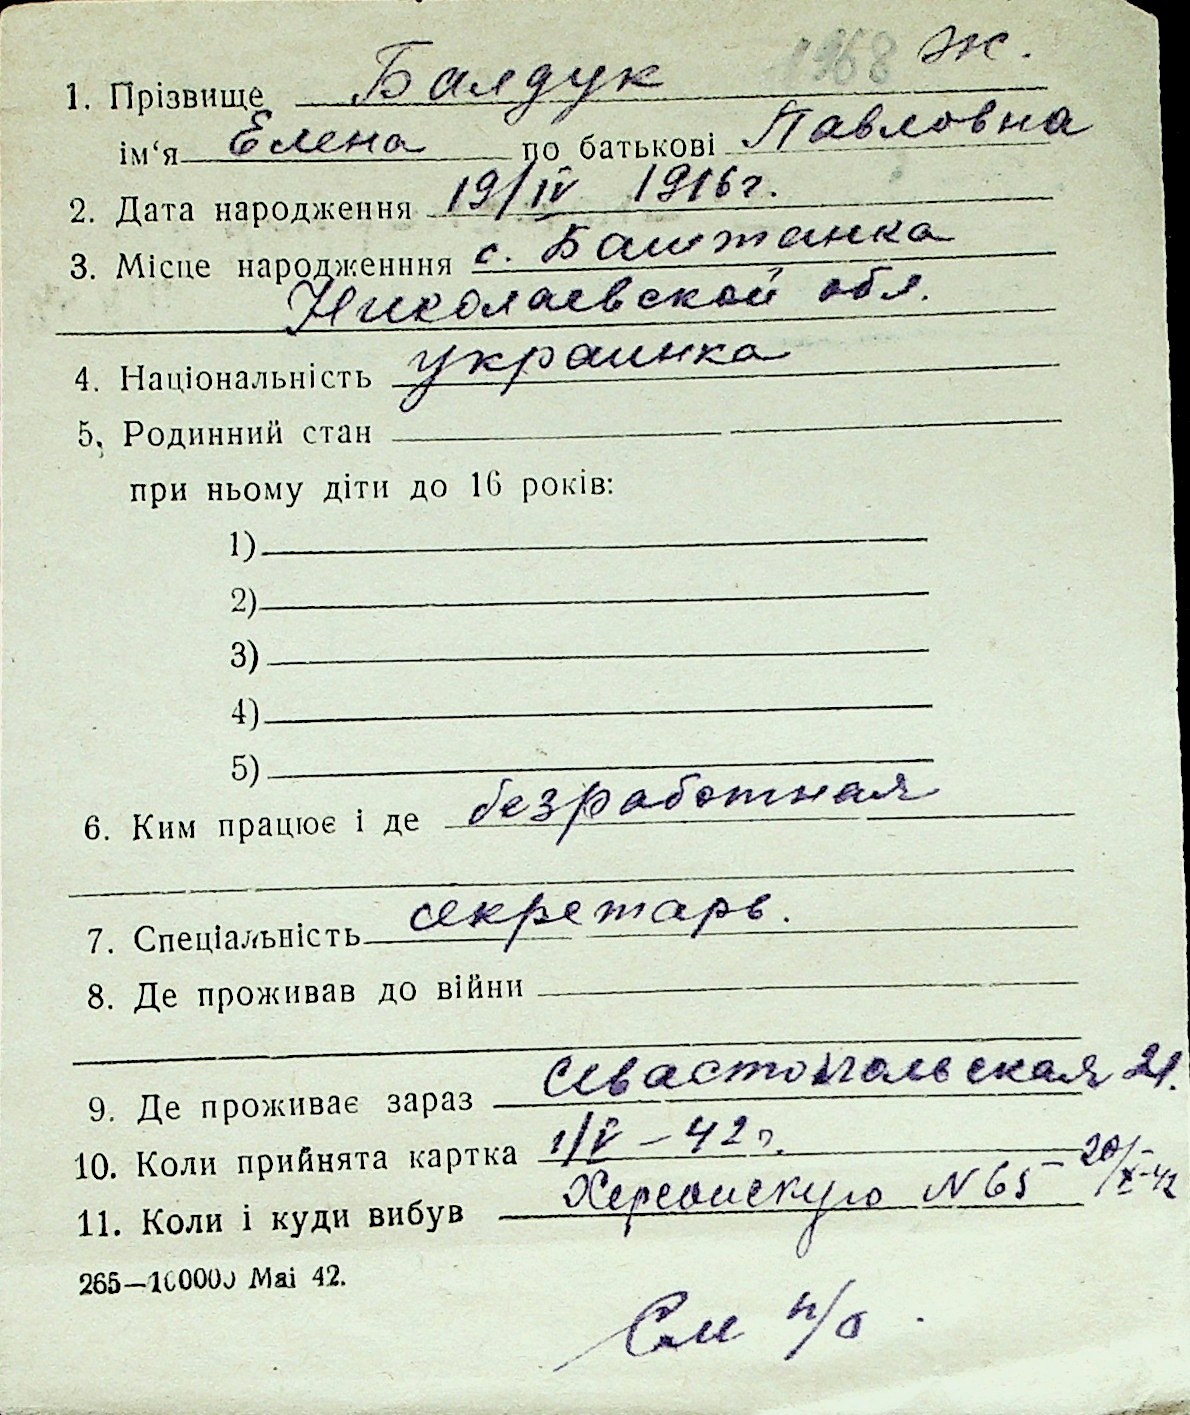 1968 Ж.
1. Прізвище Балдук
ім‘я Елена по батькові Павловна
2. Дата народження 19/IV 1916 г.
3. Місце народженння с. Баштанка
Николаевской обл.
4. Національність украинка
5. Родинний стан
при ньому діти до 16 років:
1)
2)
3)
4)
5)
6. Ким працює і де безработная
7. Спеціальність секретарь.
8. Де проживав до війни
9. Де проживає зараз Севастопольская 21.
10. Коли прийнята картка 1/V – 42 г.
11. Коли і куди вибув Херсонскую N 65 – 20/X-42
265—100000 Mai 42.
См н/о.